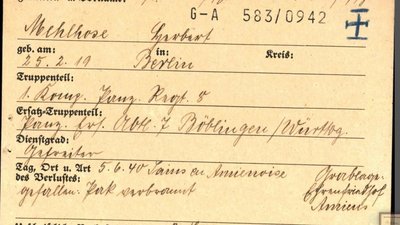 G-A 583/0942
Mehlhose Herbert
geb. am: in: Kreis:
25.2.19 Berlin
Truppenteil:
1. Komp. Panz. Regt. 8
Ersatz-Truppenteil:
Panz. Ers. Abt. 7 Böblingen/Württbg.
Dienstgrad:
Gefreiter
Tag, Ort u. Art 5.6.40 Sains en Amienoise Grablage:
des Verlustes: Ehrenfriedhof
gefallen: Pak verbrannt Amiens